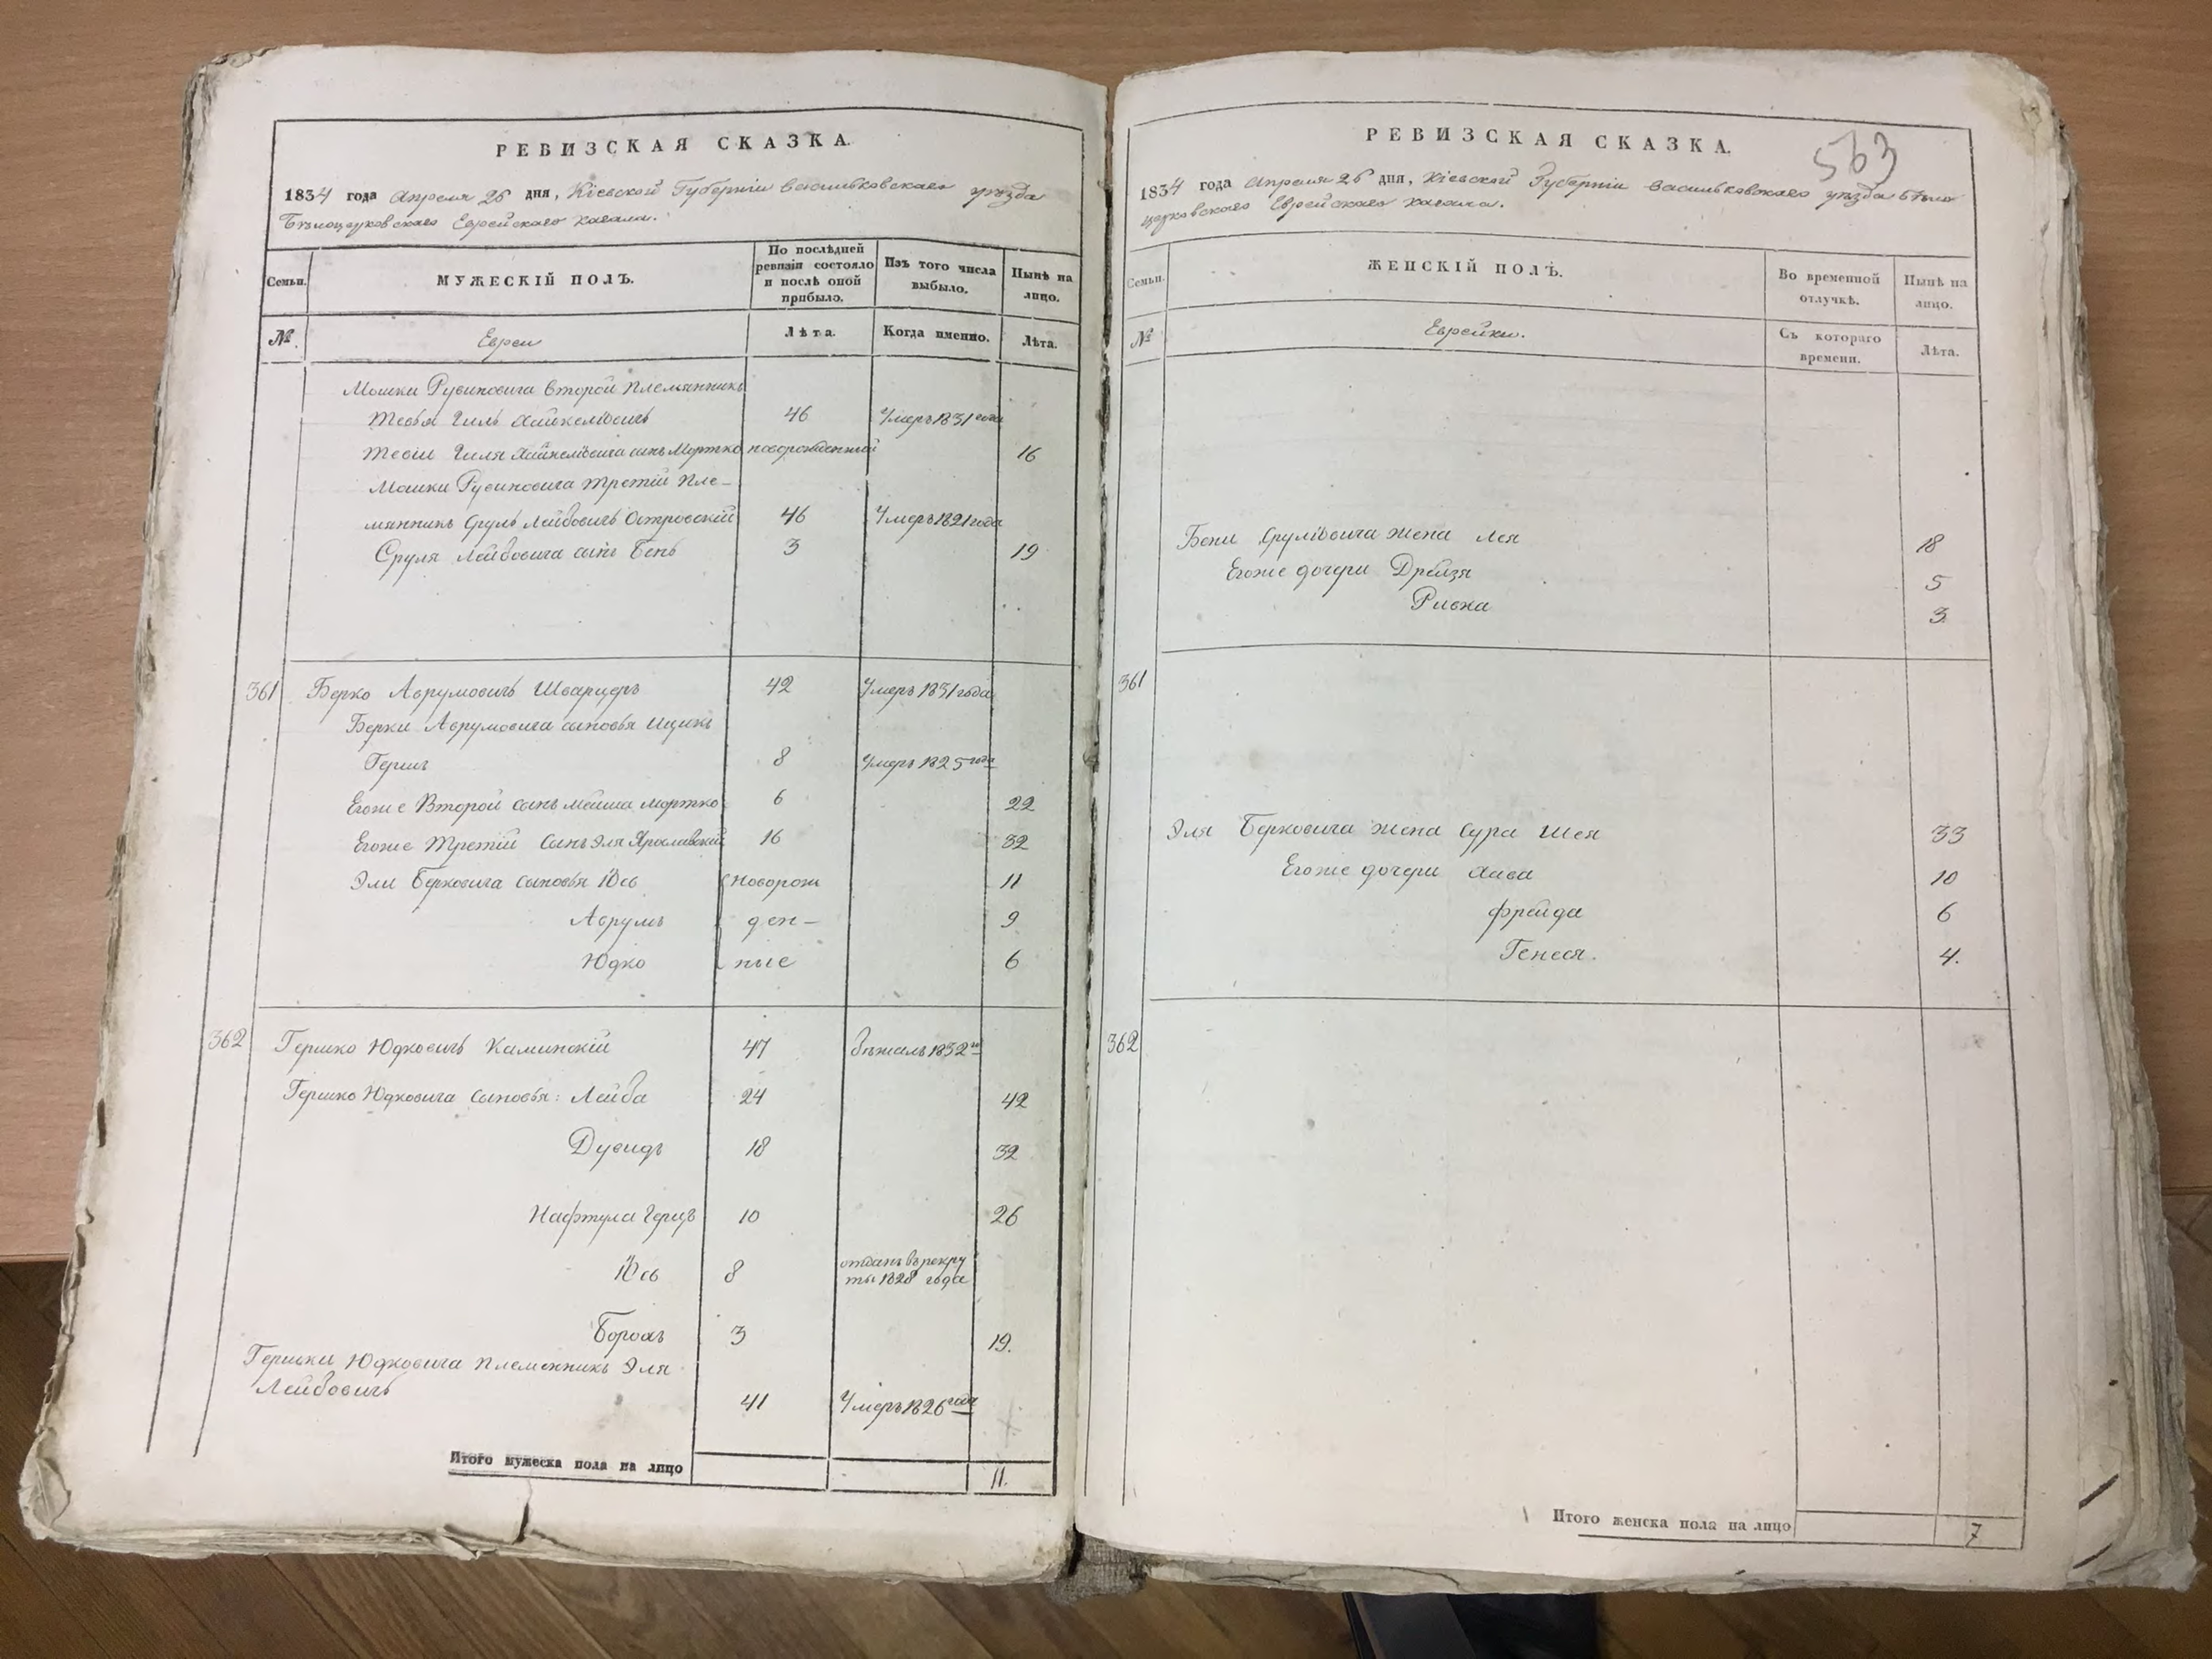 РЕВИЗСКАЯ СКАЗКА.
1834 года Апреля 25 дня, Кіевской Губерніи Васильковскаго уезда
Белоцерковскаго Еврейскаго кагала.
Семьи.
МУЖЕСКІЙ ПОЛЪ.
По послѣдней ревизіи состояло и послѣ оной прибыло.
Изъ того числа выбыло.
Нынѣ на лицо.
№.
Евреи
Лѣта.
Когда именно.
Лѣта.
Мошки Рувиновича второй племянникъ
Тевья Гиль Хайкелiовичъ 46 Умеръ 1831 года
Тевіи Гиля Хайкелiовича сынъ Мортко новорожденный 16
Мошки Рувиновича третій пле-
мянникъ Сруль Лейбовичъ Островскій 46 Умеръ 1821 года
Сруля Лейбовича сынъ Бень 3 19
361 Берко Аврумовичъ Шварцеръ 42 Умеръ 1831 года
Берки Аврумовича сыновья Ицикъ
Гершъ 8 Умеръ 1825 года
Егоже Второй сынъ Мейша Мортко 6 22
Егоже Третій Сынъ Эля Ярославскій 16 32
Эли Берковича сыновья Iось Новорож 11
Аврумъ ден- 9
Юдко ные 6
362 Гершко Юдковичъ Каминскій 47 бежалъ 1832 го
Гершко Юдковича сыновья: Лейба 24 42
Дувидъ 18 32
Нафтула Герцъ 10 26
Iось 8 отданъ въ рекру
ты 1828 года
Борохъ 3 19.
Гершки Юдковича племенникъ Эля
Лейбовичъ
41 Умеръ 1826 года
Итого мужеска пола на лицо 11.
РЕВИЗСКАЯ СКАЗКА.
563
1834 года Апреля 25 дня, Кіевской Губерніи Васильковскаго уезда Бело
церковскаго Еврейскаго кагала.
Семьи.
ЖЕНСКІЙ ПОЛЪ.
Во временной отлучкѣ.
Нынѣ на лицо.
№
Еврейки.
Съ котораго времени.
Лѣта.
Бени Срулiовича жена Лея 18
Егоже дочери Дрейзя 5
Ривка 3.
361
Эля Берковича жена Сура Шея 33
Егоже дочери Хава 10
Фрейда 6
Генеся. 4.
362
Итого женска пола на лицо 7